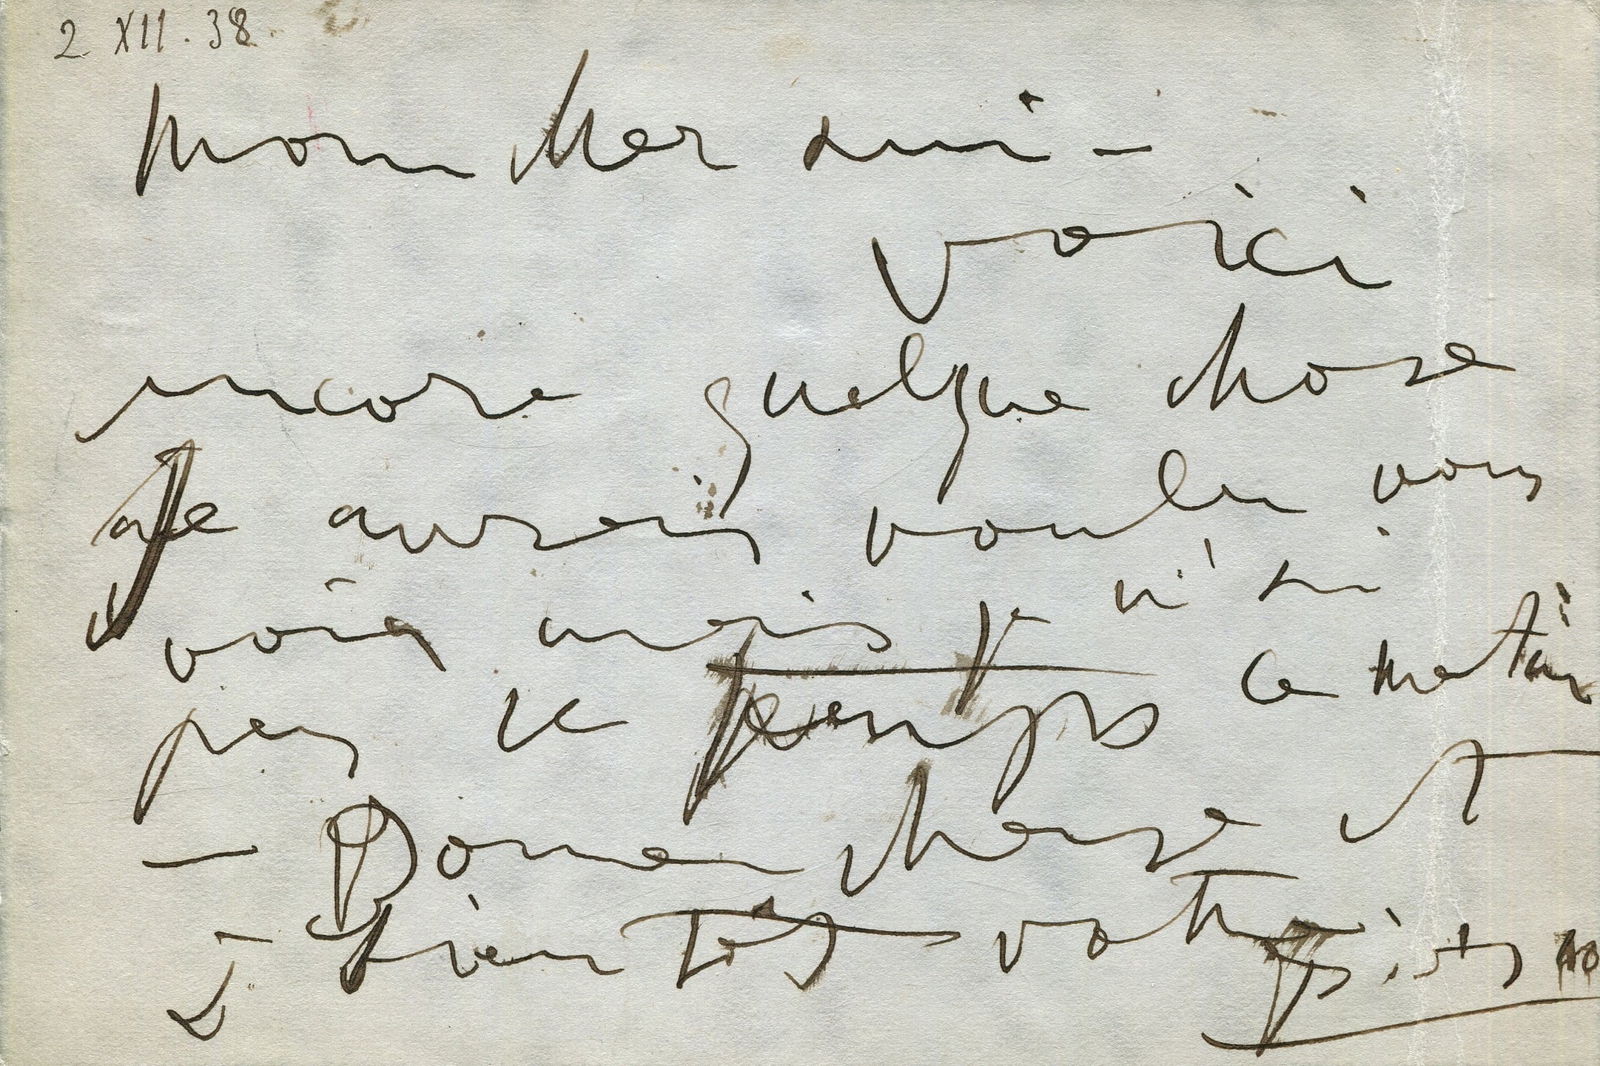 2 XII. 38.
mon cher ami –
voici
encore quelque chose
Je aurais voulu vous
voir mais je n'ai
pas le temps ce matin
– Bonne chanse et
a bientot votre